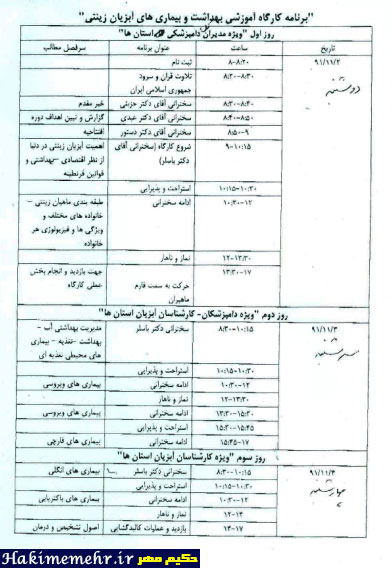 "برنامه کارگاه آموزشی بهداشت و بیماری های آبزیان زینتی"
روز اول "ویژه مدیران دامپزشکی استان ها"
تاریخ ساعت عنوان برنامه سرفصل مطالب
۹۱/۱۱/۲ ۸-۸/۲۰ ثبت نام
دوشنبه ۸/۲۰-۸/۳۰ تلاوت قران و سرود
جمهوری اسلامی ایران
۸/۳۰-۸/۴۰ سخنرانی آقای دکتر حزبئی خیر مقدم
۸/۴۰-۸/۵۰ سخنرانی آقای دکتر عبدی گزارش و تبیین اهداف دوره
۸/۵۰-۹ سخنرانی آقای دکتر دستور افتتاحیه
۹-۱۰:۱۵ شروع کارگاه (سخنرانی آقای اهمیت آبزیان زینتی در دنیا
دکتر باسلر) از نظر اقتصادی -بهداشتی و
قوانین قرنطینه
۱۰:۱۵-۱۰:۳۰ استراحت و پذیرایی
۱۰:۳۰-۱۲ ادامه سخنرانی طبقه بندی ماهیان زینتی -
خانواده های مختلف و
ویژگی ها و فیزیولوژی هر
خانواده
۱۲-۱۳:۳۰ نماز و ناهار
۱۳:۳۰-۱۷ جهت بازدید و انجام بخش
حرکت به سمت فارم عملی کارگاه
ماهیران
روز دوم "ویژه دامپزشکان- کارشناسان آبزیان استان ها"
۹۱/۱۱/۳ ۸:۳۰-۱۰:۱۵ سخنرانی دکتر باسلر مدیریت بهداشتی آب -
سه شنبه بهداشت -تغذیه - بیماری
های محیطی تغذیه ای
۱۰:۱۵-۱۰:۳۰ استراحت و پذیرایی
۱۰:۳۰-۱۲ ادامه سخنرانی بیماری های ویروسی
۱۲-۱۳:۳۰ نماز و ناهار
۱۳:۳۰-۱۵:۳۰ ادامه سخنرانی بیماری های ویروسی
۱۵:۳۰-۱۵:۴۵ استراحت و پذیرایی
۱۵:۴۵-۱۷ ادامه سخنرانی بیماری های قارچی
روز سوم "ویژه کارشناسان آبزیان استان ها"
۹۱/۱۱/۴ ۸:۳۰-۱۰:۱۵ سخنرانی دکتر باسلر بیماری های انگلی
چهارشنبه ۱۰:۱۵-۱۰:۳۰ استراحت و پذیرایی
۱۰:۳۰-۱۲ ادامه سخنرانی بیماری های باکتریایی
۱۲-۱۴ نماز و ناهار
۱۴-۱۷ بازدید و عملیات کالبدگشایی اصول تشخیص و درمان
حکیم مهر Hakimemehr.ir